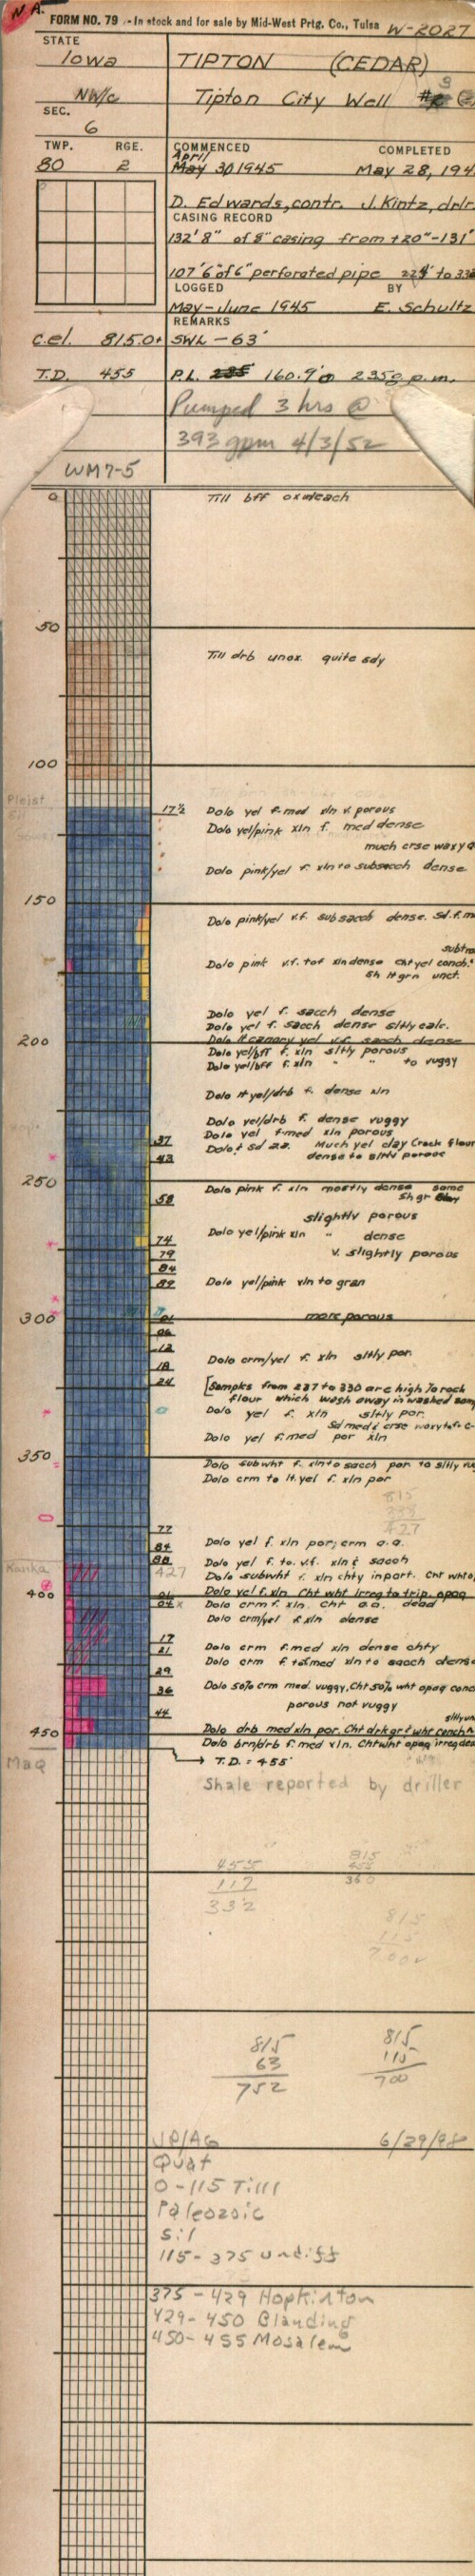 N.A.
FORM NO. 79 - In stock and for sale by Mid-West Prtg. Co., Tulsa W-2027
STATE
Iowa TIPTON (CEDAR)
NW/c Tipton City Well # 3
SEC.
6
TWP. RGE. COMMENCED COMPLETED
April
80 2 May 30 1945 May 28, 194
D. Edwards, contr. J. Kintz, drlr.
CASING RECORD
132' 8" of 8" casing from +20"-131'
107' 6" of 6" perforated pipe 224' to 33
LOGGED BY
May-June 1945 E. Schultz
REMARKS
c.el. 815.0+ SWL - 63'
T.D. 455 P.L. 160.9' @ 235 g.p.m.
Pumped 3 hrs @
393 gpm 4/3/52
WM7-5
0 Till bff ox unleach
50
Till drb unox. quite sdy
100
Pleist
Sil
17½ Dolo yel f-med xln v. porous
Dolo yel/pink xln f. med dense
much crse waxy
Dolo pink/yel f. xln to subsacch dense
150
Dolo pink/yel v.f. subsacch dense. Sd. f. m
Dolo pink v.f. to f xln dense Cht yel conch.
sh lt grn unct.
Dolo yel f. sacch dense
Dolo yel f. sacch dense sltly calc.
200 Dolo lt canary yel v.f. sacch dense
Dolo yel/bff f. xln sltly porous
Dolo yel/bff f. xln " " to vuggy
Dolo lt yel/drb f. dense xln
Dolo yel/drb f. dense vuggy
Dolo yel f-med xln porous
37 Dolo & Sd aa. Much yel clay Crock flour
43 dense to sltly porous
250 Dolo pink f. xln mostly dense some
58 sh gr
slightly porous
74 Dolo yel/pink xln " dense
79 v. slightly porous
84
89 Dolo yel/pink xln to gran
300 01 more porous
06
12
18 Dolo crm/yel f. xln sltly por.
24 [Samples from 237 to 330 are high % rock
flour which wash away in washed sam
Dolo yel f. xln sltly por.
Sd med & crse waxy
Dolo yel f-med por xln
350 Dolo subwht f. xln to sacch por to sltly vu
Dolo crm to lt. yel f. xln por
815
427
77
84 Dolo yel f. xln por; crm a.a.
88 Dolo yel f. to v.f. xln & sacch
Kanka 427 Dolo subwht f. xln chty in part. Cht wht
400 01 Dolo yel f. xln Cht wht irreg to trip. opaq
04 x Dolo crm f. xln. Cht a.a. dead
Dolo crm/yel f. xln dense
17
21 Dolo crm f. med xln dense chty
Dolo crm f to f. med xln to sacch dens
29
36 Dolo 50% crm med. vuggy, Cht 50% wht opaq conc
44 porous not vuggy
450 Dolo drb med xln por. Cht drk gr & wht conch
Dolo brn/drb f. med xln. Cht wht opaq irreg de
→ T.D. = 455'
Maq
Shale reported by driller
455 815
117
332 360
815
115
700
815 815
63 115
752 700
JP/AG 6/29/98
Quat
0-115 Till
Paleozoic
Sil
115-375 undiff
375-429 Hopkinton
429-450 Blanding
450-455 Mosalem